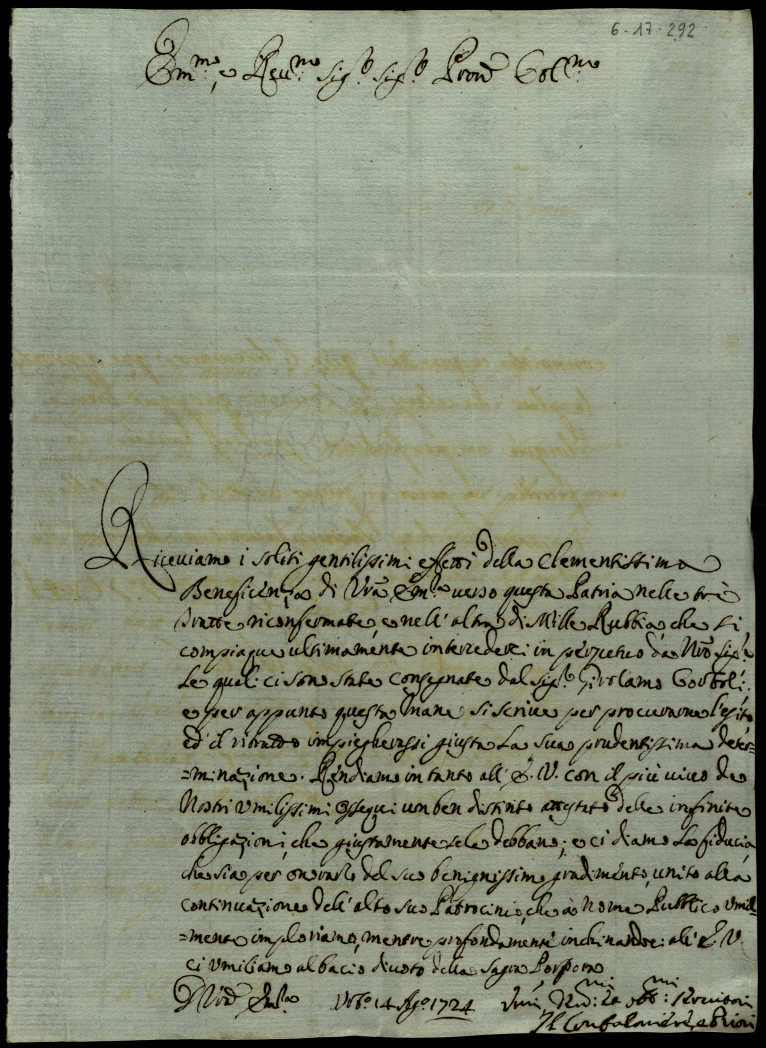 6-17-292
Em.mo e Reu.mo Sig.r Sig.r Pron Col.mo
Riceuiamo i soliti gentilissimi effetti della Clementissima
Beneficenza di Vrã Em.a uerso questa Patria nelle trè
tratte riconfermate, e nell'altra di Mille Rubbia, che si
compiaque ultimamente intercederci in perpetuo da Nrõ Sig.re
Le quali ci sono state consegnate dal Sig.r Girolamo
e per appunto questa mane si scriue per procurarne l'esito
ed il ritratto impiegherassi giusta La sua prudentissima deter=
=minazione. Rendiamo intanto all'E. V. con il più uiuo de
Nostri Vmilissimi Ossequi un ben distinto attestato delle infinite
obbligazioni, che giustamente se le debbano; e ci diamo La fiducia
che sia per onorarlo del suo benignissimo gradimento, unito alla
continuazione dell'alto suo Patrocinio, che à Nome Pubblico Vmil=
=mente imploriamo, mentre profondamente inchinandoci all'E. V.
ci umiliamo al bacio diuoto della Sagra Porpora
Di Vrã Em.a Urb.o 14 Ag.o 1724 Vmi Deu.mi et obb.mi Seruitori
Il Confaloniere, e Priori